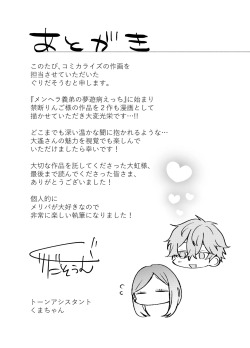 あとがき
このたび、コミカライズの作画を
担当させていただいた
ぐりだそうむと申します。
『メンヘラ義弟の夢遊病えっち』に始まり
禁断りんご様の作品を２作も漫画として
描かせていただき大変光栄です…!!
どこまでも深い温かな闇に抱かれるような…
大遥さんの魅力を視覚でも楽しんで
いただけましたら幸いです！
大切な作品を託してくださった大虹様、
最後まで読んでくださった皆さま、
ありがとうございました！
個人的に
メリバが大好きなので
非常に楽しい執筆になりました！
トーンアシスタント
くまちゃん